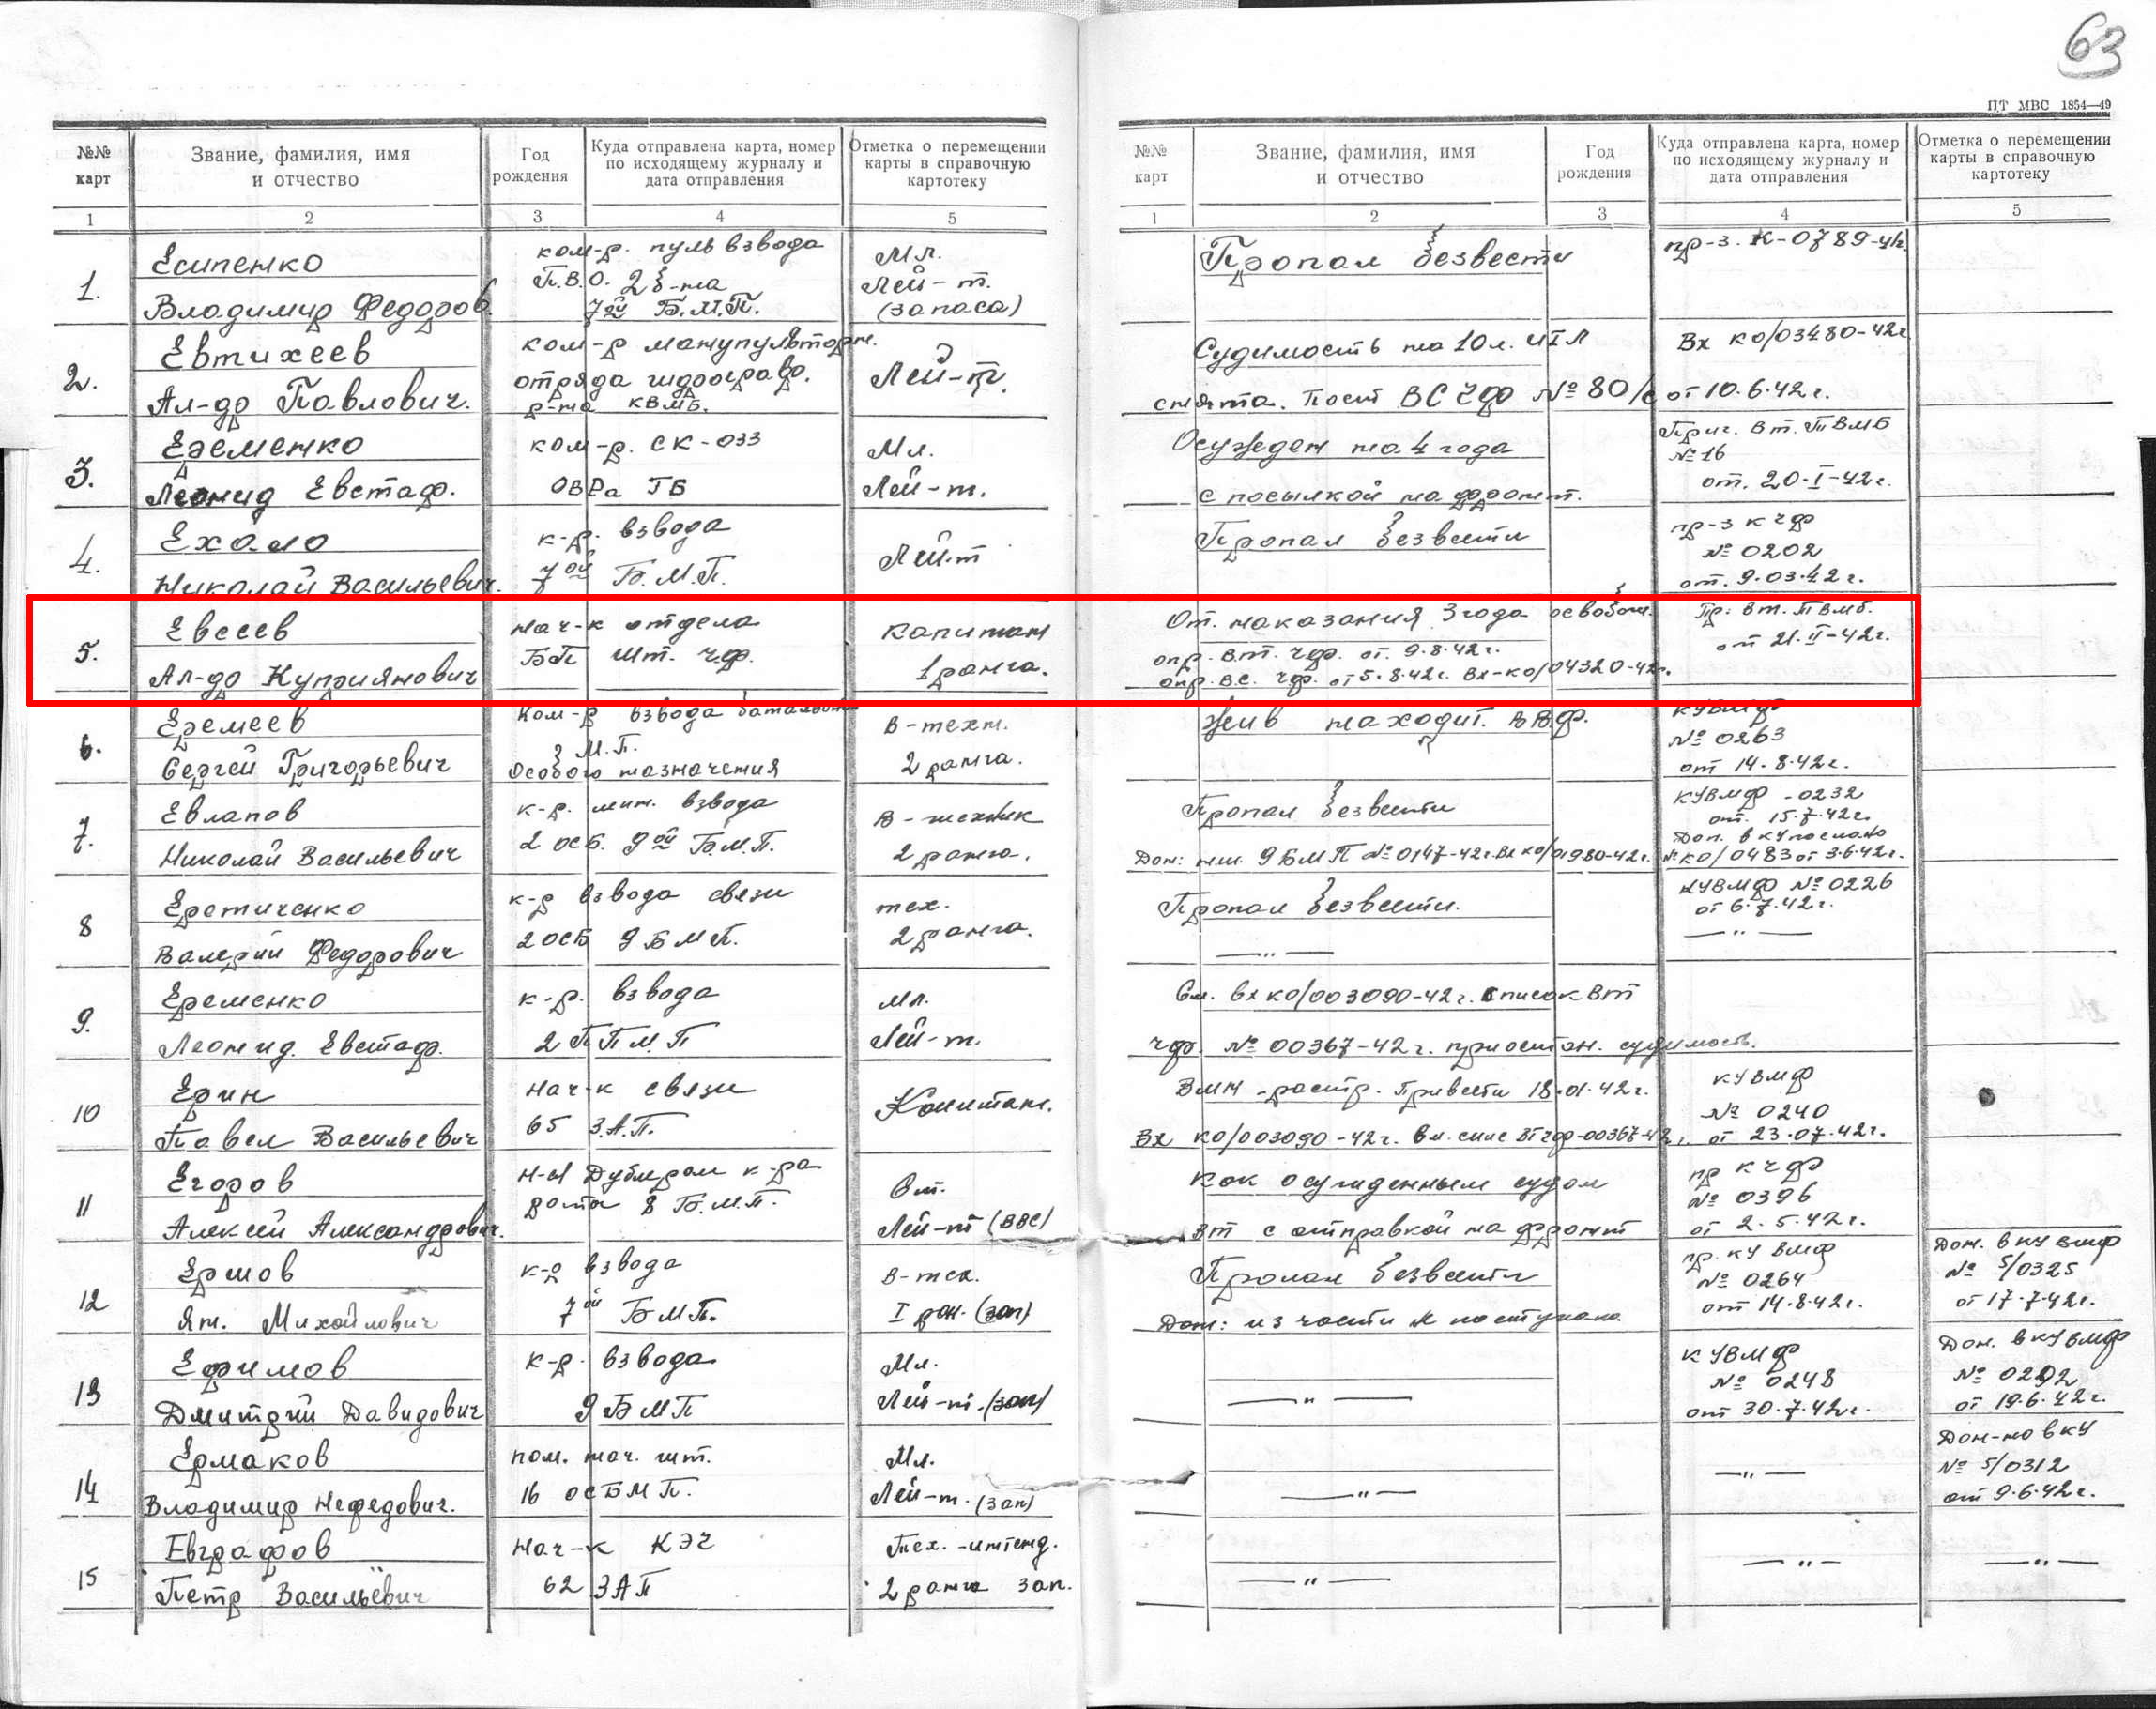 63
ЦТ МВС 1854—49
№№ карт
Звание, фамилия, имя и отчество
Год рождения
Куда отправлена карта, номер по исходящему журналу и дата отправления
Отметка о перемещении карты в справочную картотеку
№№ карт
Звание, фамилия, имя и отчество
Год рождения
Куда отправлена карта, номер по исходящему журналу и дата отправления
Отметка о перемещении карты в справочную картотеку
1 2 3 4 5 1 2 3 4 5
1. Есипенко
Владимир Федоров.
ком-р. пульвзвода
П.В.О. 2 б-на
7ой Б.М.П.
Мл.
Лей-т.
(запаса)
Пропал безвести
пр-з. К-0789-42.
2. Евтихеев
Ал-др Павлович.
ком-р манупуляторн.
отряда гидрограф.
р-на КВМБ.
Лей-т.
Судимость на 10 л. ИТЛ
снята. Пост ВС ЧФ № 80/с
Вх КО/03480-42г
от 10.6.42г.
3. Еременко
Леонид Евстаф.
ком-р. СК-033
ОВРа ГБ
Мл.
Лей-т.
Осужден на 4 года
с посылкой на фронт.
Приг. Вт. ПВМБ
№ 16
от. 20-I-42г.
4. Ехало
Николай Васильевич.
к-р. взвода
7ой Б.М.П.
Лей-т
Пропал безвести
пр-з КЧФ
№ 0202
от. 9.03.42г.
5. Евсеев
Ал-др Куприянович
нач-к отдела
БП шт. ЧФ.
капитан
1 ранга.
От. наказания 3 года освобож.
опр. в.т. ЧФ. от. 9.8.42г.
опр. в.с. ЧФ. от 5.8.42г. Вх-КО/04320-42г.
Пр: Вт. ПВМБ.
от 21.II-42г.
6. Еремеев
Сергей Григорьевич
Ком-р взвода батальона
М.П.
Особого назначения
В-техн.
2 ранга.
Жив находит. в ВФ.
КУВМФ
№ 0263
от 14.8.42г.
7. Евлапов
Николай Васильевич
к-р. мин. взвода
2 осб. 9ой Б.М.П.
В-техник
2 ранга.
Пропал безвести
Дон: нш. 9 БМП № 0147-42г. Вх КО/01980-42г.
КУВМФ - 0232
от. 15.7.42г.
Дон. в КУ послано
№ КО/0483 от 3.6.42г.
8 Еретиченко
Валерий Федорович
к-р взвода связи
2 ОСБ 9 БМП.
тех.
2 ранга.
Пропал безвести.
—"—
КУВМФ № 0226
от 6.7.42г.
—"—
9. Еременко
Леонид. Евстаф.
к-р. взвода
2 ППМ.П
мл.
Лей-т.
См. вх КО/003090-42г. список ВТ
ЧФ. № 00367-42г. приостан. судимость.
10 Ерин
Павел Васильевич
нач-к связи
65 З.А.П.
Капитан.
ВМН - растр. Привести 18.01.42г.
Вх КО/003090-42г. Вм. спис ВТ ЧФ-00367-42г.
КУВМФ
№ 0240
от 23.07.42г.
11 Егоров
Алексей Александрович.
Н-й Дублером к-ра
роты 8 Б.М.П.
Лей-т (ВВС)
как осужденным судом
ВТ с отправкой на фронт
пр КЧФ
№ 0396
от 2.5.42г.
12 Ершов
Ян. Михайлович
к-р взвода
7ой БМП.
В-тех.
I ран. (зап)
Пропал безвести
Дон: из части не поступало
пр. КУ ВМФ
№ 0264
от 14.8.42г.
Дон. в КУ ВМФ
№ 5/0325
от 17.7.42г.
13 Ефимов
Дмитрий Давидович
к-р. взвода
9 БМП
Мл.
Лей-т. (зап)
—"—
КУВМФ
№ 0248
от 30.7.42г.
Дон. в КУ ВМФ
№ 0292
от 19.6.42г.
14 Ермаков
Владимир Нефедович.
пом. нач. шт.
16 осБМП.
Мл.
Лей-т. (зап)
—"—
—"—
Дон-но в КУ
№ 5/0312
от 9.6.42г.
15 Евграфов
Петр Васильевич
Нач-к КЭЧ
62 ЗАП
Тех.-интенд.
2 ранга зап.
—"—
—"—
—"—